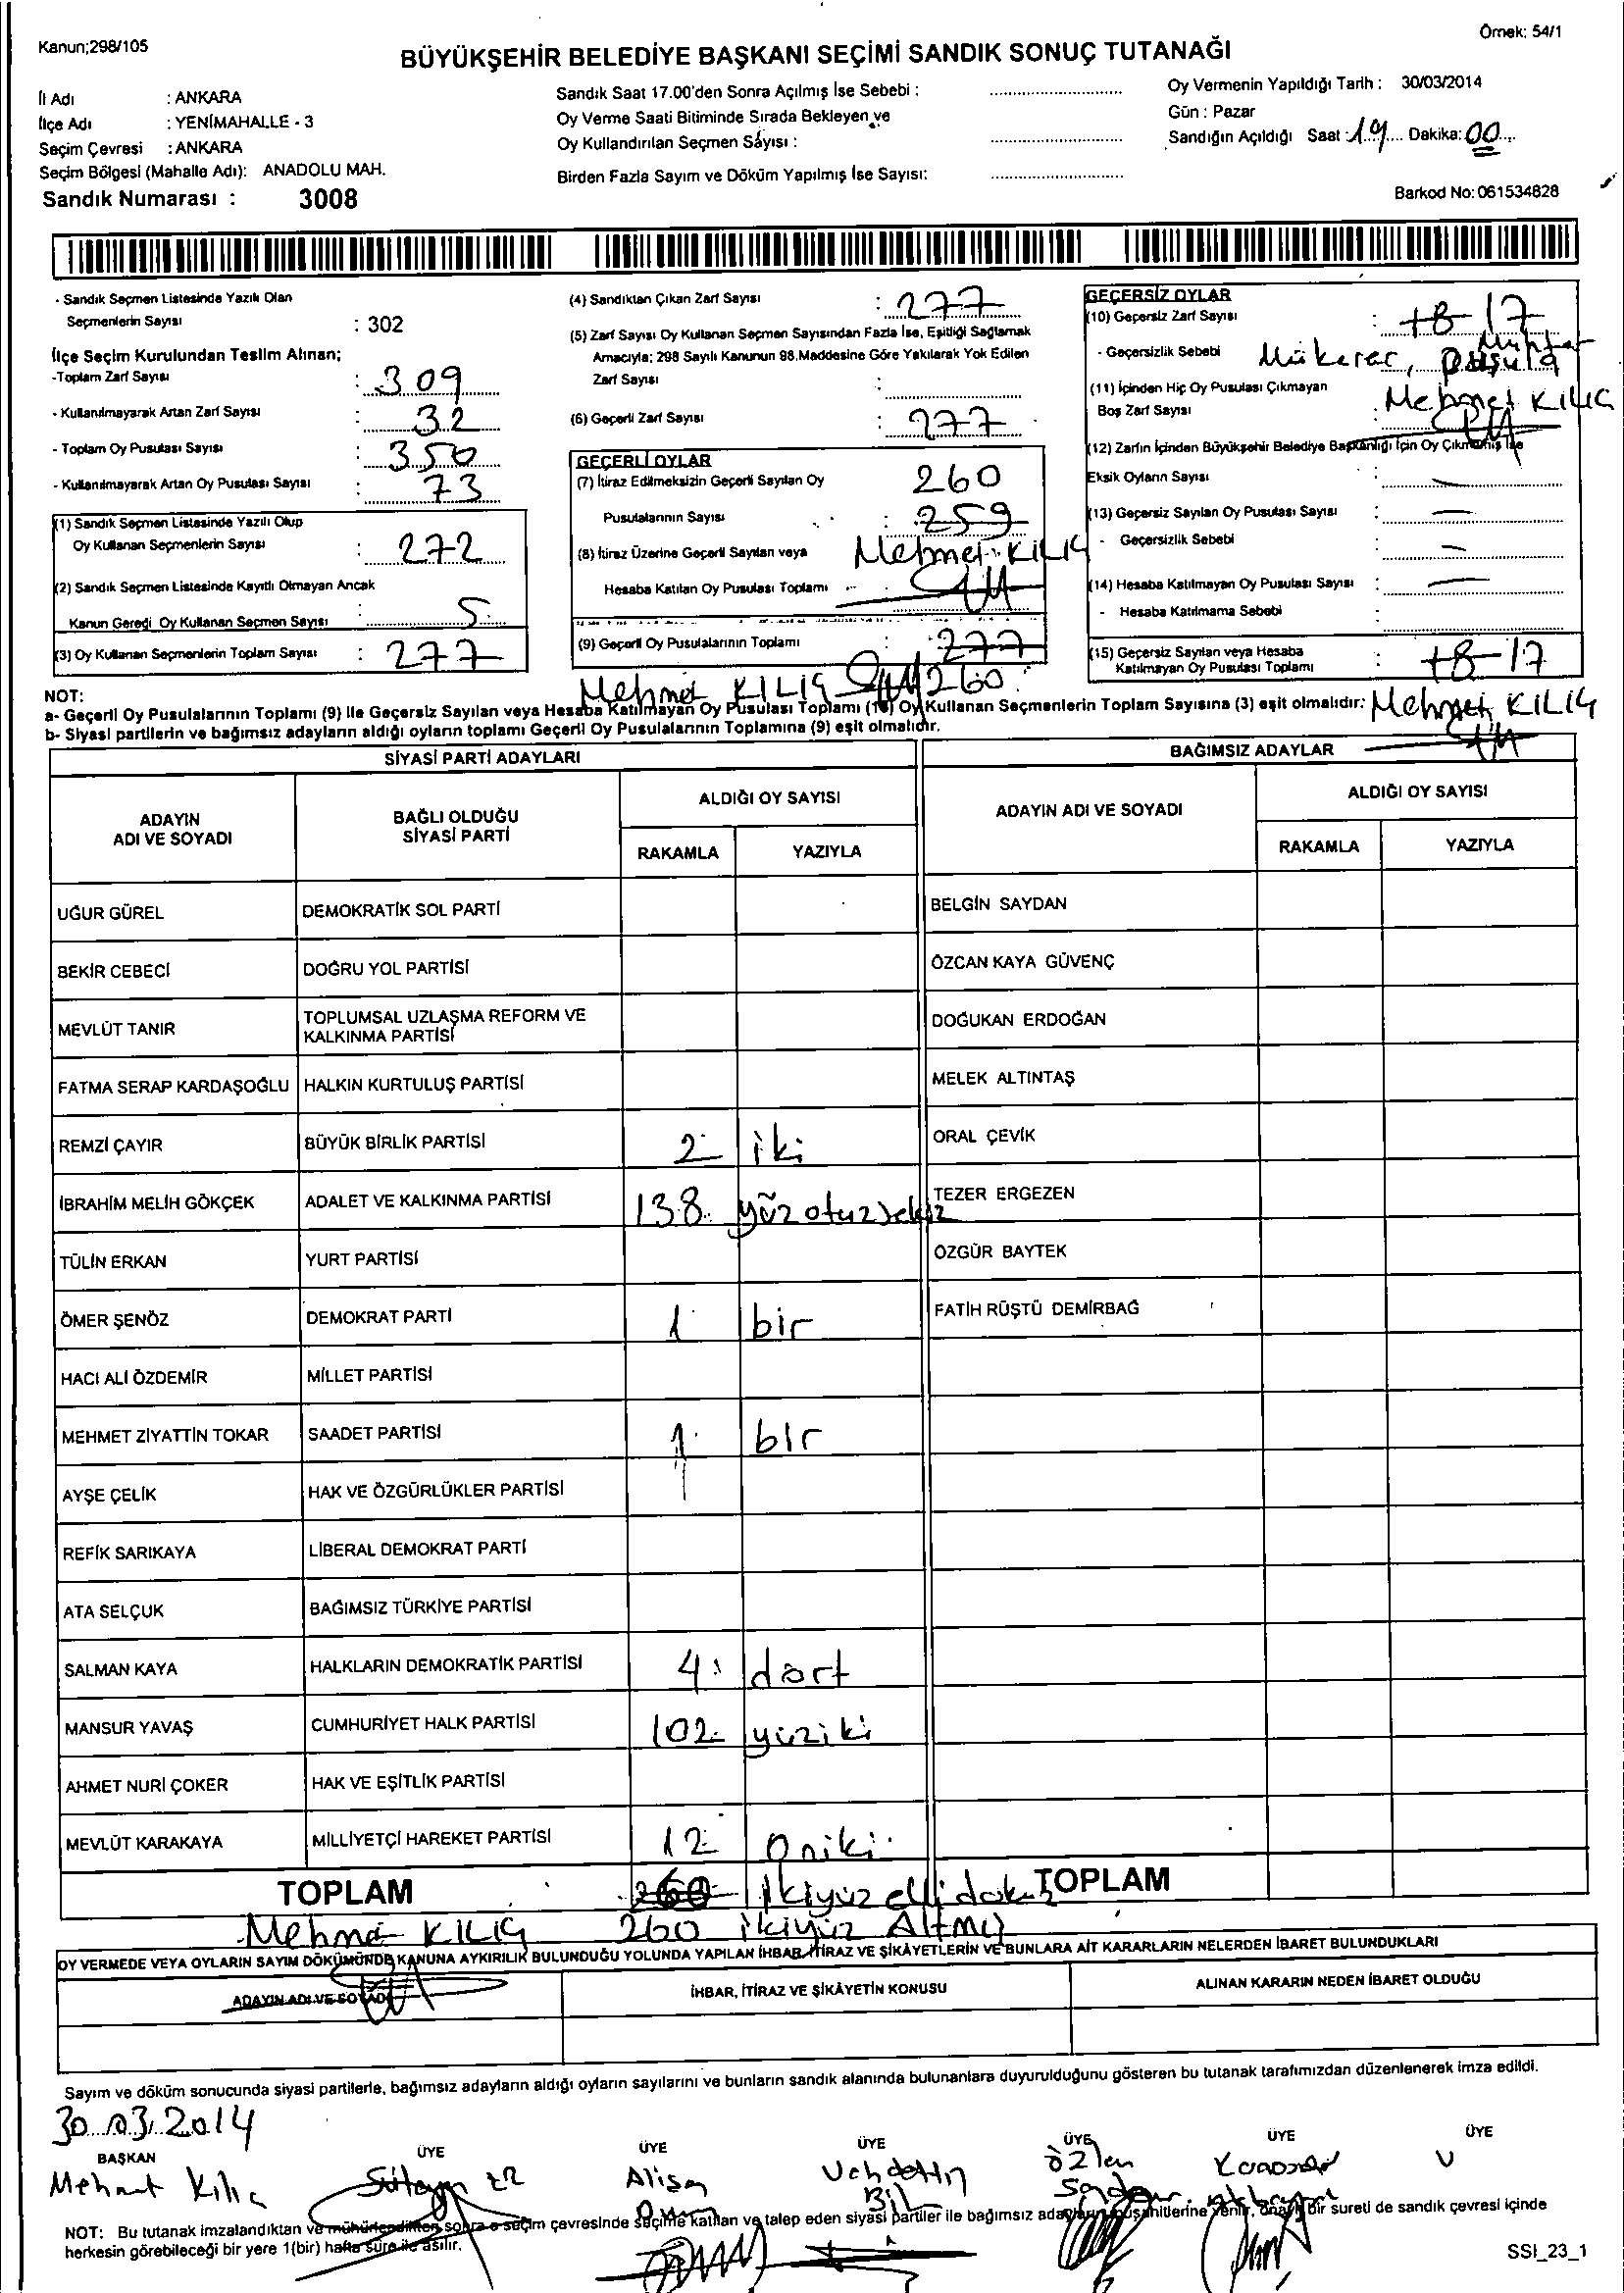 Kanun;298/105
Örnek: 54/1
BÜYÜKŞEHİR BELEDİYE BAŞKANI SEÇİMİ SANDIK SONUÇ TUTANAĞI
İl Adı : ANKARA
İlçe Adı : YENİMAHALLE - 3
Seçim Çevresi : ANKARA
Seçim Bölgesi (Mahalle Adı): ANADOLU MAH.
Sandık Numarası : 3008
Sandık Saat 17.00'den Sonra Açılmış İse Sebebi :
Oy Verme Saati Bitiminde Sırada Bekleyen ve
Oy Kullandırılan Seçmen Sayısı :
Birden Fazla Sayım ve Döküm Yapılmış İse Sayısı:
Oy Vermenin Yapıldığı Tarih : 30/03/2014
Gün : Pazar
Sandığın Açıldığı Saat : 19 Dakika: 00
Barkod No: 061534828
- Sandık Seçmen Listesinde Yazılı Olan
Seçmenlerin Sayısı : 302
İlçe Seçim Kurulundan Teslim Alınan;
-Toplam Zarf Sayısı : 309
- Kullanılmayarak Artan Zarf Sayısı : 32
- Toplam Oy Pusulası Sayısı : 350
- Kullanılmayarak Artan Oy Pusulası Sayısı : 73
(1) Sandık Seçmen Listesinde Yazılı Olup
Oy Kullanan Seçmenlerin Sayısı : 272
(2) Sandık Seçmen Listesinde Kayıtlı Olmayan Ancak
Kanun Gereği Oy Kullanan Seçmen Sayısı : 5
(3) Oy Kullanan Seçmenlerin Toplam Sayısı : 277
(4) Sandıktan Çıkan Zarf Sayısı : 277
(5) Zarf Sayısı Oy Kullanan Seçmen Sayısından Fazla İse, Eşitliği Sağlamak
Amacıyla; 298 Sayılı Kanunun 98.Maddesine Göre Yakılarak Yok Edilen
Zarf Sayısı :
(6) Geçerli Zarf Sayısı : 277
GEÇERLİ OYLAR
(7) İtiraz Edilmeksizin Geçerli Sayılan Oy 260
Pusulalarının Sayısı : 259
(8) İtiraz Üzerine Geçerli Sayılan veya Mehmet KILIÇ
Hesaba Katılan Oy Pusulası Toplamı
(9) Geçerli Oy Pusulalarının Toplamı : 277
Mehmet KILIÇ 260
GEÇERSİZ OYLAR
(10) Geçersiz Zarf Sayısı : 18 17
- Geçersizlik Sebebi Mükerer, Muhtar Pusula
(11) İçinden Hiç Oy Pusulası Çıkmayan Mehmet KILIÇ
Boş Zarf Sayısı :
(12) Zarfın İçinden Büyükşehir Belediye Başkanlığı İçin Oy Çıkmamış İse
Eksik Oyların Sayısı : —
(13) Geçersiz Sayılan Oy Pusulası Sayısı : —
- Geçersizlik Sebebi : —
(14) Hesaba Katılmayan Oy Pusulası Sayısı : —
- Hesaba Katılmama Sebebi :
(15) Geçersiz Sayılan veya Hesaba
Katılmayan Oy Pusulası Toplamı : 18 17
Mehmet KILIÇ
NOT:
a- Geçerli Oy Pusulalarının Toplamı (9) ile Geçersiz Sayılan veya Hesaba Katılmayan Oy Pusulası Toplamı (15) Oy Kullanan Seçmenlerin Toplam Sayısına (3) eşit olmalıdır:
b- Siyasi partilerin ve bağımsız adayların aldığı oyların toplamı Geçerli Oy Pusulalarının Toplamına (9) eşit olmalıdır.
SİYASİ PARTİ ADAYLARI
BAĞIMSIZ ADAYLAR
ADAYIN ADI VE SOYADI
BAĞLI OLDUĞU SİYASİ PARTİ
ALDIĞI OY SAYISI
RAKAMLA YAZIYLA
ADAYIN ADI VE SOYADI
ALDIĞI OY SAYISI
RAKAMLA YAZIYLA
UĞUR GÜREL DEMOKRATİK SOL PARTİ BELGİN SAYDAN
BEKİR CEBECİ DOĞRU YOL PARTİSİ ÖZCAN KAYA GÜVENÇ
MEVLÜT TANIR TOPLUMSAL UZLAŞMA REFORM VE KALKINMA PARTİSİ DOĞUKAN ERDOĞAN
FATMA SERAP KARDAŞOĞLU HALKIN KURTULUŞ PARTİSİ MELEK ALTINTAŞ
REMZİ ÇAYIR BÜYÜK BİRLİK PARTİSİ 2 iki ORAL ÇEVİK
İBRAHİM MELİH GÖKÇEK ADALET VE KALKINMA PARTİSİ 138 yüzotuzsekiz TEZER ERGEZEN
TÜLİN ERKAN YURT PARTİSİ ÖZGÜR BAYTEK
ÖMER ŞENÖZ DEMOKRAT PARTİ 1 bir FATİH RÜŞTÜ DEMİRBAĞ
HACI ALİ ÖZDEMİR MİLLET PARTİSİ
MEHMET ZİYATTİN TOKAR SAADET PARTİSİ 1 bir
AYŞE ÇELİK HAK VE ÖZGÜRLÜKLER PARTİSİ
REFİK SARIKAYA LİBERAL DEMOKRAT PARTİ
ATA SELÇUK BAĞIMSIZ TÜRKİYE PARTİSİ
SALMAN KAYA HALKLARIN DEMOKRATİK PARTİSİ 4 dört
MANSUR YAVAŞ CUMHURİYET HALK PARTİSİ 102 yüziki
AHMET NURİ ÇOKER HAK VE EŞİTLİK PARTİSİ
MEVLÜT KARAKAYA MİLLİYETÇİ HAREKET PARTİSİ 12 Oniki
TOPLAM 260 ikiyüzellidokuz TOPLAM
Mehmet KILIÇ 260 ikiyüz Altmış
OY VERMEDE VEYA OYLARIN SAYIM DÖKÜMÜNDE KANUNA AYKIRILIK BULUNDUĞU YOLUNDA YAPILAN İHBAR, İTİRAZ VE ŞİKÂYETLERİN VE BUNLARA AİT KARARLARIN NELERDEN İBARET BULUNDUKLARI
ADAYIN ADI VE SOYADI
İHBAR, İTİRAZ VE ŞİKÂYETİN KONUSU
ALINAN KARARIN NEDEN İBARET OLDUĞU
Sayım ve döküm sonucunda siyasi partilerle, bağımsız adayların aldığı oyların sayılarını ve bunların sandık alanında bulunanlara duyurulduğunu gösteren bu tutanak tarafımızdan düzenlenerek imza edildi.
30.03.2014
BAŞKAN ÜYE ÜYE ÜYE ÜYE ÜYE ÜYE
Mehmet Kılıç Alişan Vahdettin Bil Özlen
NOT: Bu tutanak imzalandıktan ve mühürlendikten sonra o seçim çevresinde seçime katılan ve talep eden siyasi partiler ile bağımsız adayların müşahitlerine verilir, onaylı bir sureti de sandık çevresi içinde
herkesin görebileceği bir yere 1(bir) hafta süre ile asılır.
SSI_23_1